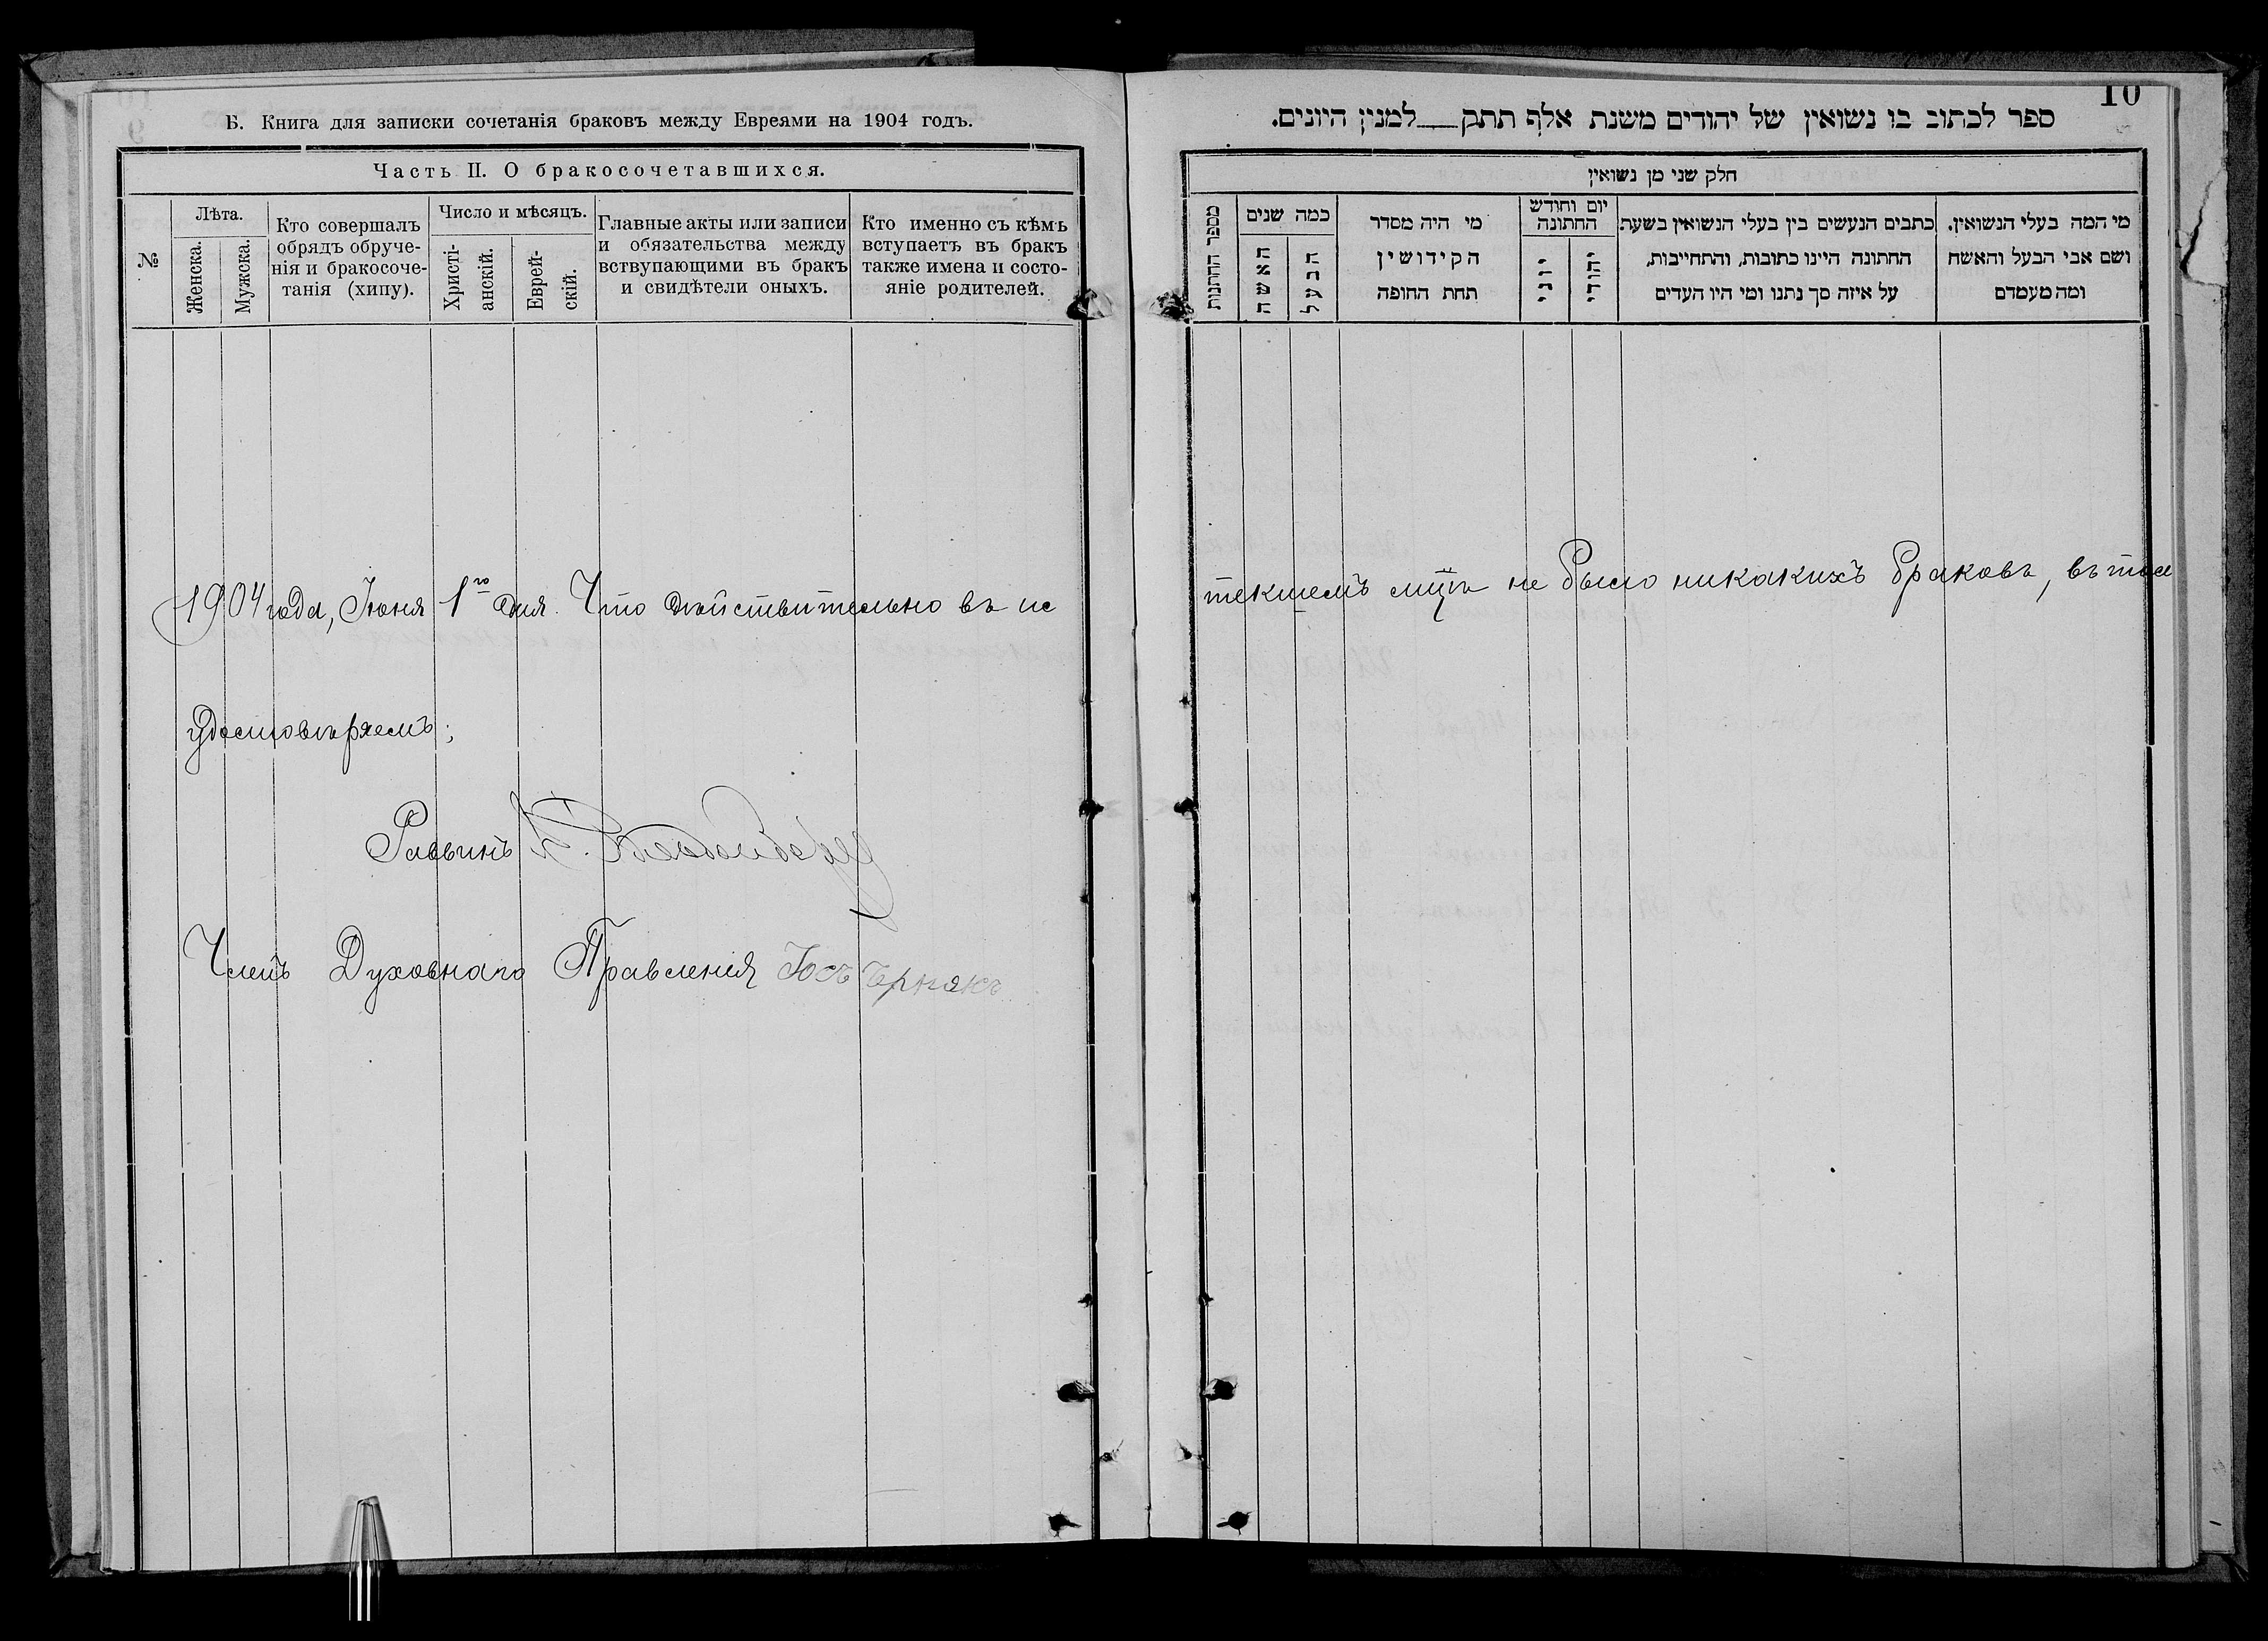 Б. Книга для записки сочетанія браковъ между Евреями на 1904 годъ.
Часть II. О бракосочетавшихся.
№
Лѣта.
Женска.
Мужска.
Кто совершалъ
обрядъ обруче-
нія и бракосоче-
танія (хипу).
Число и мѣсяцъ.
Христі-
анскій.
Еврей-
скій.
Главные акты или записи
и обязательства между
вствупающими въ бракъ
и свидѣтели оныхъ.
Кто именно съ кѣмъ
вступаетъ въ бракъ
также имена и состо-
яніе родителей.
1904 года, Іюня 1го дня. Что дѣйствительно въ ис
удостовѣряемъ;
Раввинъ
Членъ Духовнаго Правленія Іосъ Чернякъ
10
ספר לכתוב בו נשואין של יהודים משנת אלף תתק___למנין היונים.
חלק שני מן נשואין
מי המה בעלי הנשואין.
ושם אבי הבעל והאשה
ומה מעמדם
כתבים הנעשים בין בעלי הנשואין בשעת
החתונה היינו כתובות, והתחייבות,
על איזה סך נתנו ומי היו העדים
יום וחודש
החתונה
יהודי
יוני
מי היה מסדר
הקידושין
תחת החופה
כמה שנים
הבעל
האשה
מספר החתנות
текшемъ мцѣ не было никакихъ браковъ, въ томъ